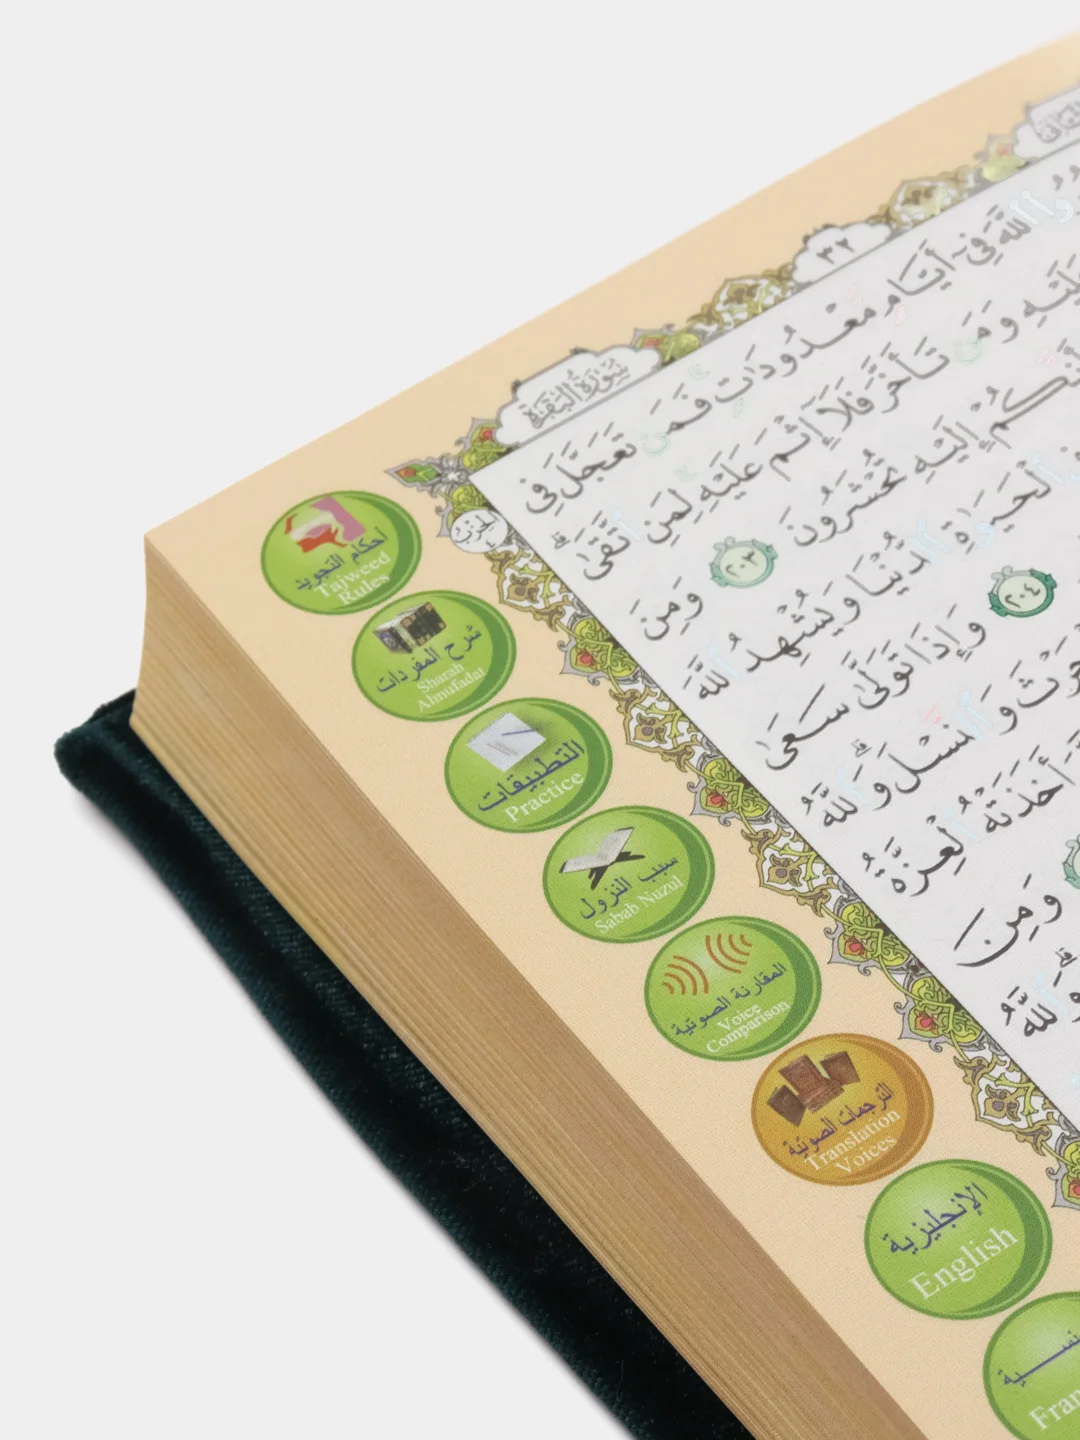 ٣٢
سُورَةُ البَقَرَةِ
الحزب
٤
ٱللَّهَ فِىٓ أَيَّامٍ مَّعْدُودَاتٍ فَمَن تَعَجَّلَ فِى
وَمَن تَأَخَّرَ فَلَآ إِثْمَ عَلَيْهِ لِمَنِ ٱتَّقَىٰ ۗ
إِلَيْهِ تُحْشَرُونَ ٢٠٣ وَمِنَ
ٱلْحَيَوٰةِ ٱلدُّنْيَا وَيُشْهِدُ ٱللَّهَ
٢٠٤ وَإِذَا تَوَلَّىٰ سَعَىٰ
وَٱلنَّسْلَ ۗ وَٱللَّهُ
أَخَذَتْهُ ٱلْعِزَّةُ
وَمِنَ
أحكام التجويد
Tajweed
Rules
شرح المفردات
Sharah
Almufadat
التطبيقات
Practice
سبب النزول
Sabab Nuzul
المقارنة الصوتية
Voice
Comparison
الترجمات الصوتية
Translation
Voices
الإنجليزية
English